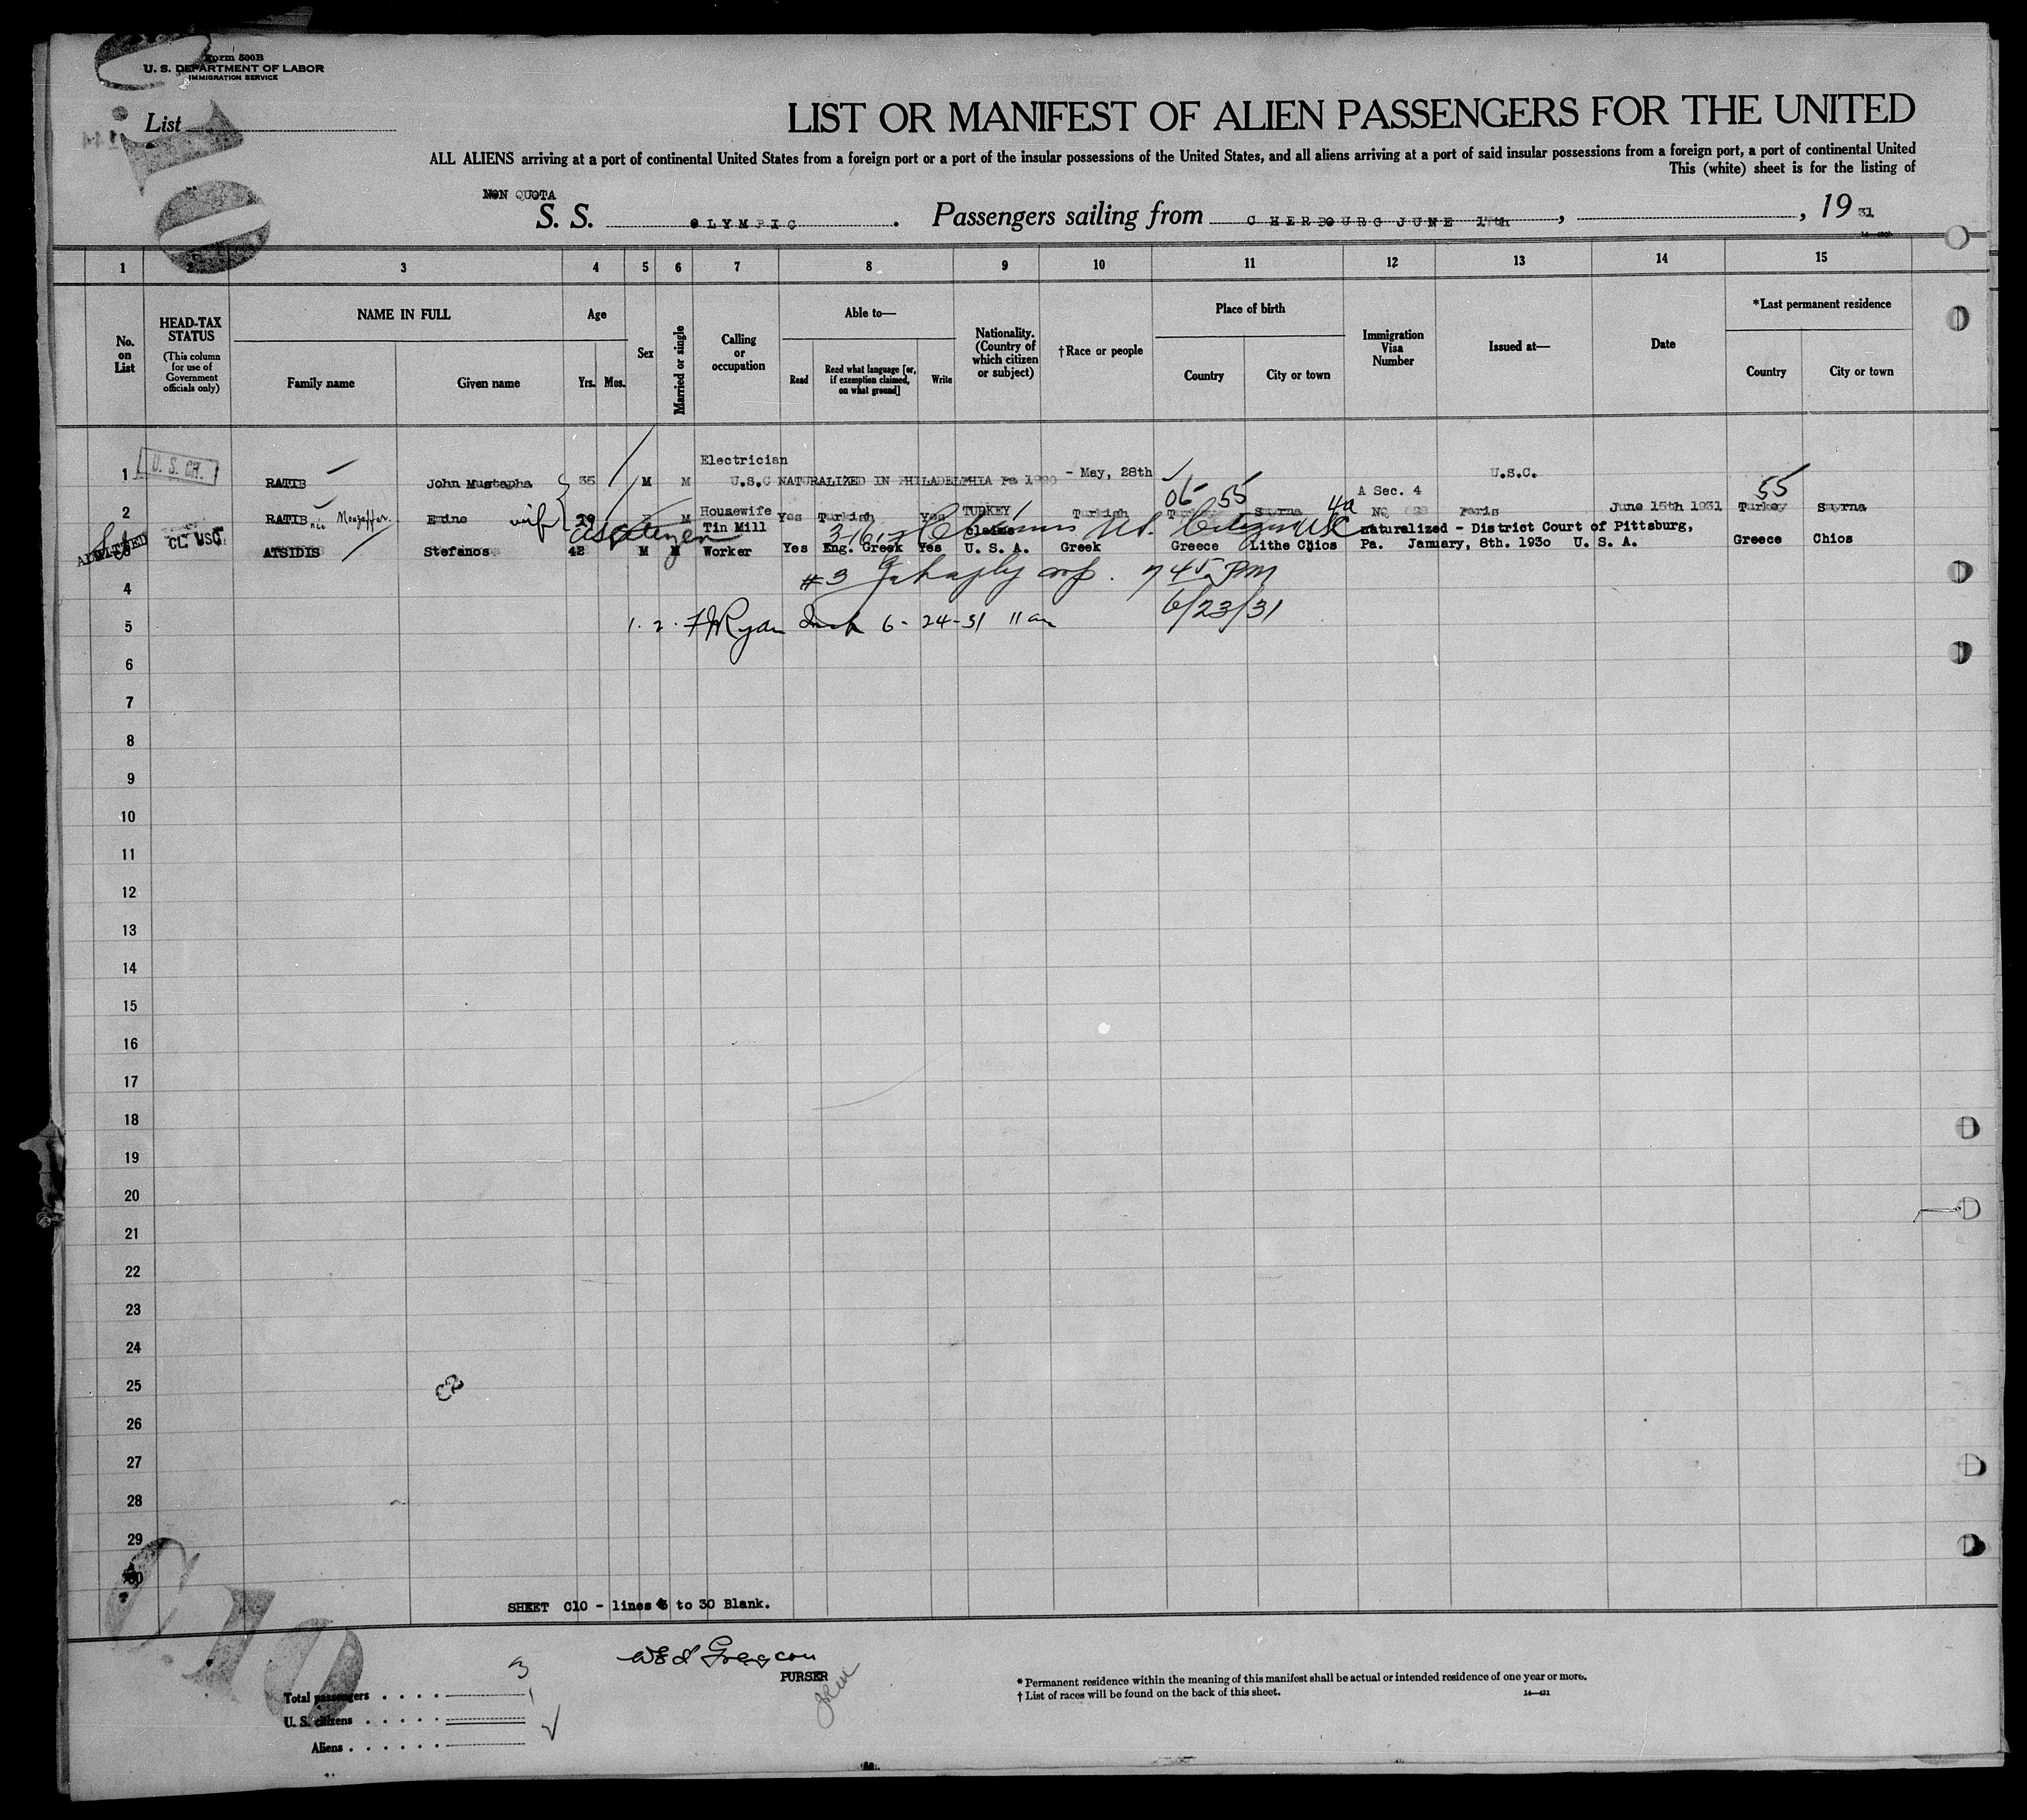 Form 500B
U. S. DEPARTMENT OF LABOR
IMMIGRATION SERVICE
List
LIST OR MANIFEST OF ALIEN PASSENGERS FOR THE UNITED
ALL ALIENS arriving at a port of continental United States from a foreign port or a port of the insular possessions of the United States, and all aliens arriving at a port of said insular possessions from a foreign port, a port of continental United
This (white) sheet is for the listing of
NON QUOTA
S. S. OLYMPIC. Passengers sailing from CHERBOURG JUNE 17th, , 19 31
1 2 3 4 5 6 7 8 9 10 11 12 13 14 15
No. on List
HEAD-TAX STATUS
(This column for use of Government officials only)
NAME IN FULL
Family name
Given name
Age
Yrs. Mos.
Sex
Married or single
Calling or occupation
Able to—
Read
Read what language [or, if exemption claimed, on what ground]
Write
Nationality. (Country of which citizen or subject)
†Race or people
Place of birth
Country
City or town
Immigration Visa Number
Issued at—
Date
*Last permanent residence
Country
City or town
Electrician
1 RATIB John Mustapha 35 M M U.S.C NATURALIZED IN PHILADELPHIA Pa - May, 28th U.S.C.
05 55 A Sec. 4 55
2 RATIB née Mouzaffer. Emine wife 29 F M Housewife Yes Turkish Yes TURKEY Turkish Turkey Smyrna No Paris June 15th 1931 Turkey Smyrna
ADMITTED CL USC Tin Mill claims naturalized - District Court of Pittsburg,
3 ATSIDIS Stefanos 42 M M Worker Yes Eng. Greek Yes U. S. A. Greek Greece Lithe Chios Pa. January, 8th. 1930 U. S. A. Greece Chios
4 #3 7 45 PM
6/23/31
5 1. 2. Ryan 6-24-31 11 am
6
7
8
9
10
11
12
13
14
15
16
17
18
19
20
21
22
23
24
25
26
27
28
29
30
SHEET C10 - lines to 30 Blank.
C10
PURSER
Total passengers 3
U. S. citizens 1
Aliens
* Permanent residence within the meaning of this manifest shall be actual or intended residence of one year or more.
† List of races will be found on the back of this sheet.